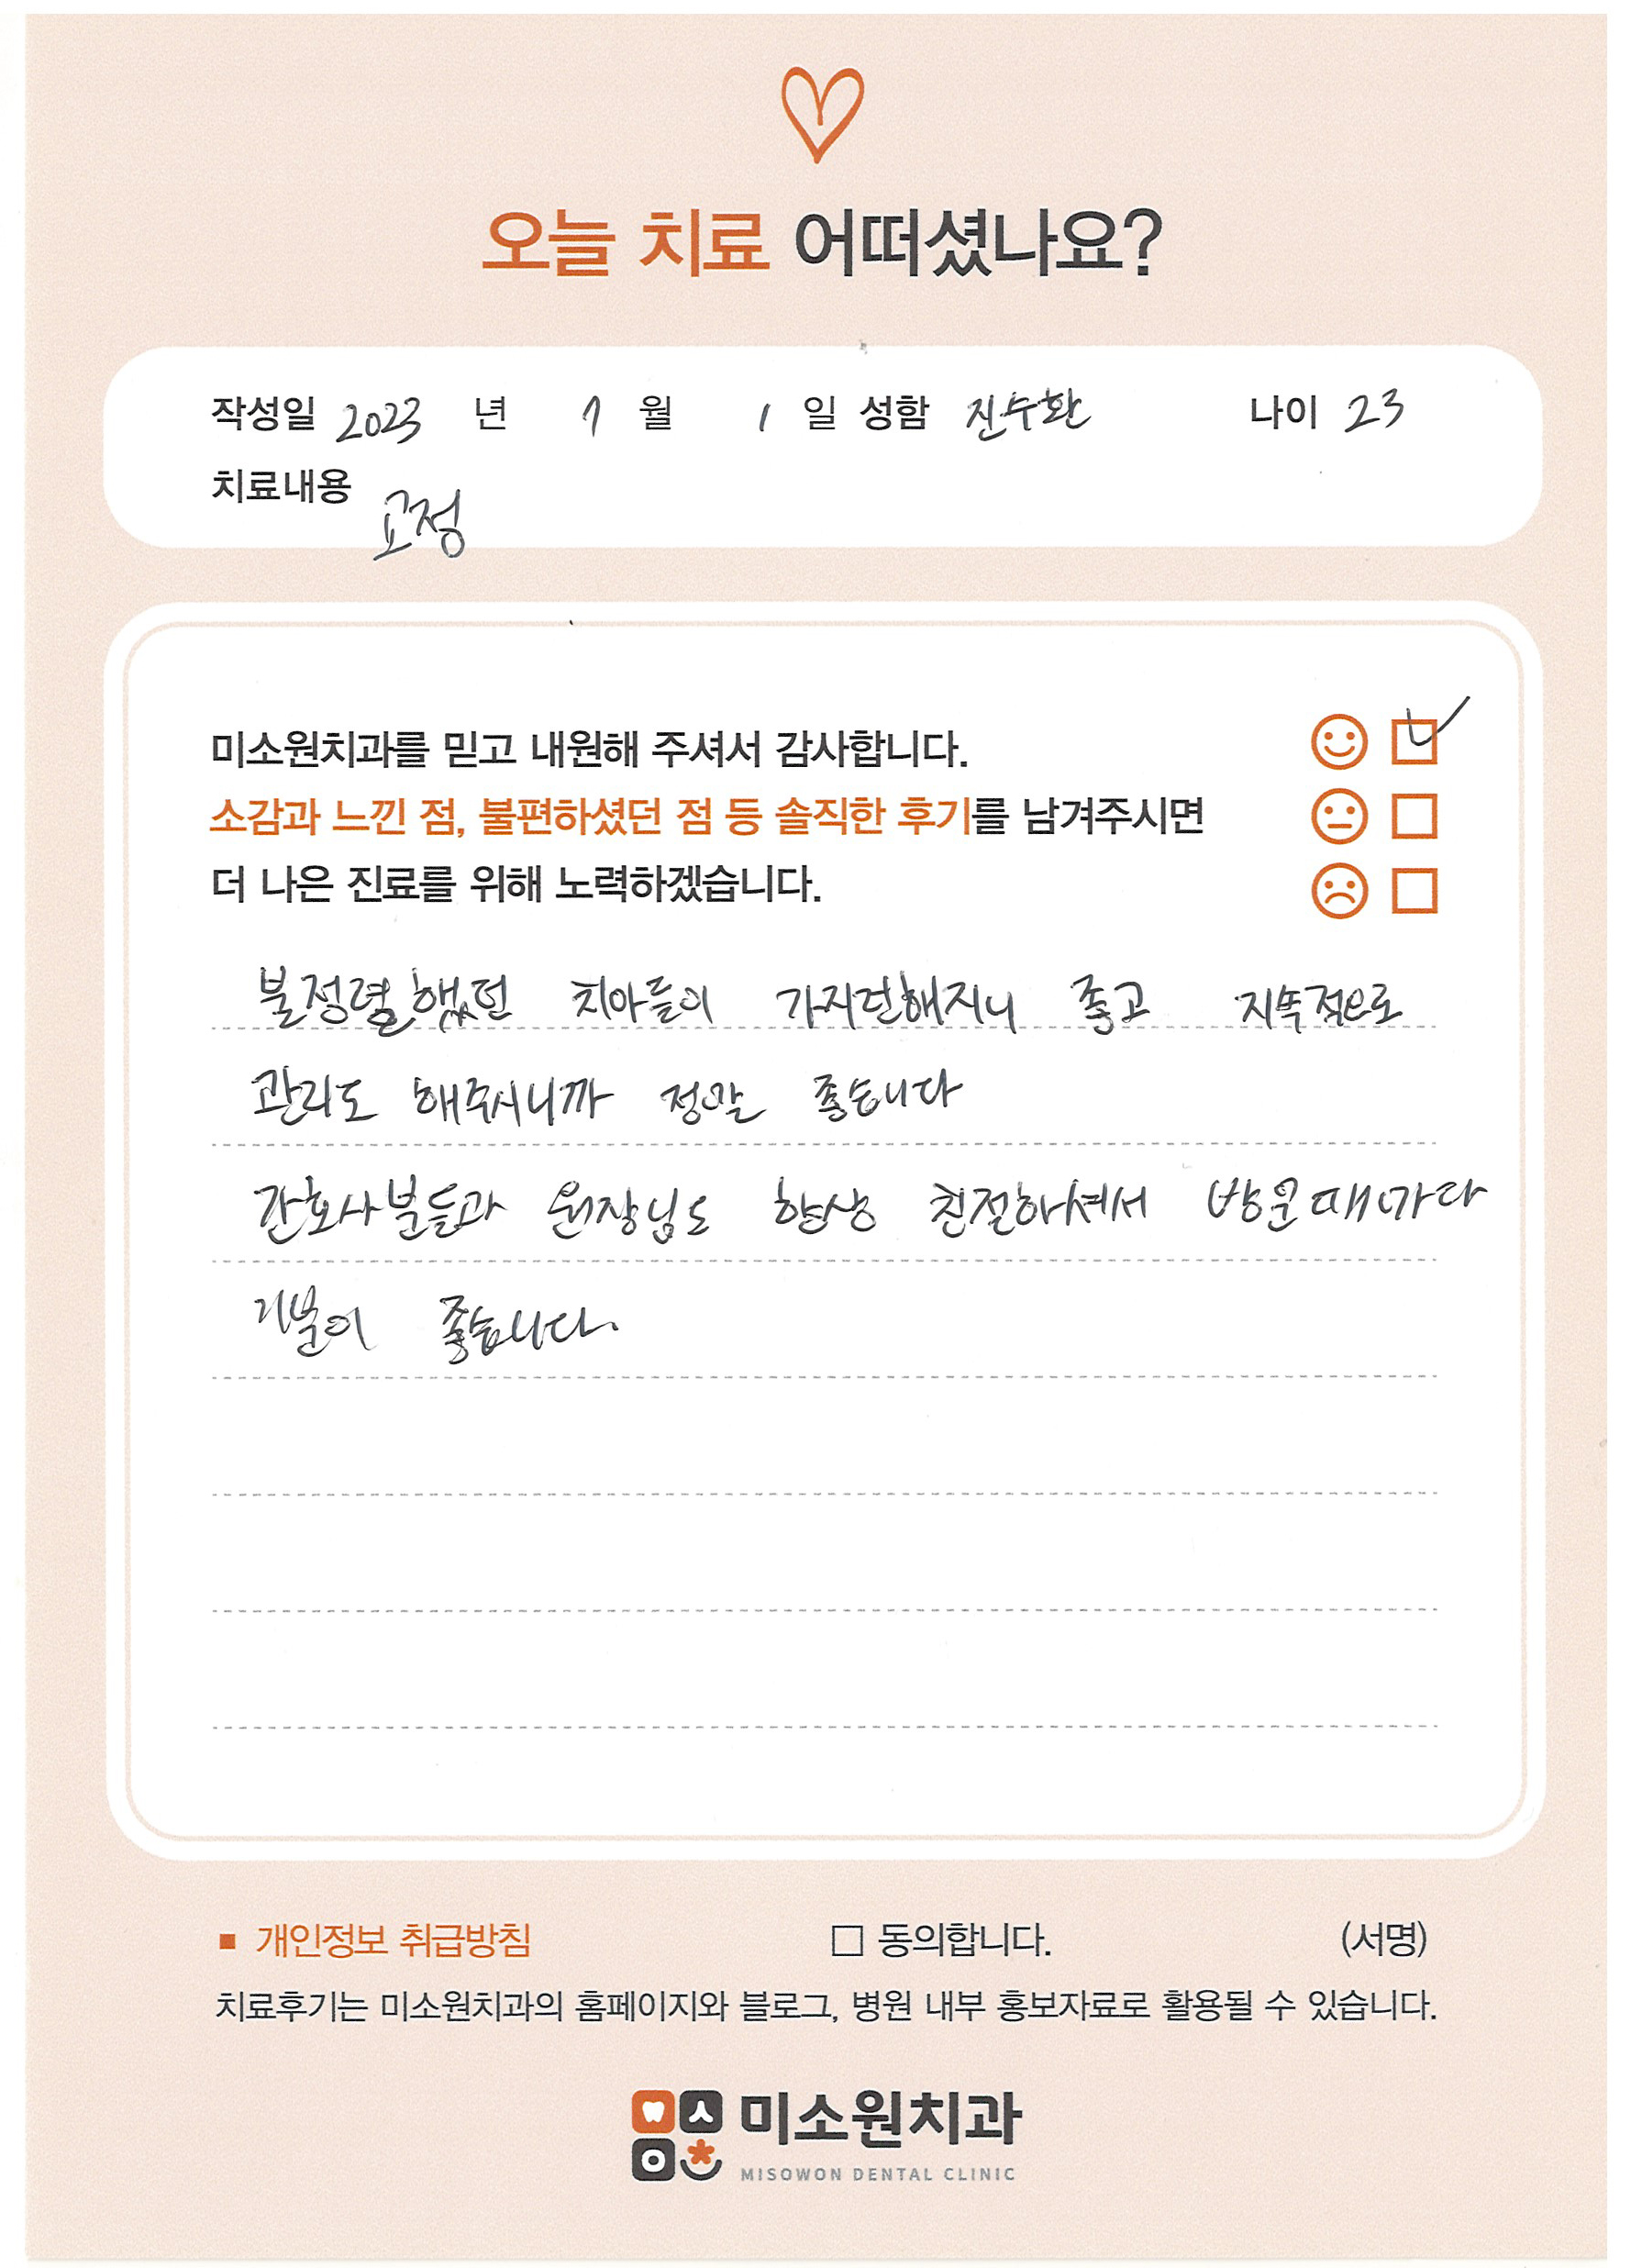 오늘 치료 어떠셨나요?
작성일 2023 년 7 월 1 일 성함 진수환 나이 23
치료내용 교정
미소원치과를 믿고 내원해 주셔서 감사합니다.
소감과 느낀 점, 불편하셨던 점 등 솔직한 후기를 남겨주시면
더 나은 진료를 위해 노력하겠습니다.
불정렬했던 치아들이 가지런해지니 좋고 지속적으로
관리도 해주시니까 정말 좋습니다
간호사분들과 원장님도 항상 친절하셔서 방문때마다
기분이 좋습니다.
■ 개인정보 취급방침 □ 동의합니다. (서명)
치료후기는 미소원치과의 홈페이지와 블로그, 병원 내부 홍보자료로 활용될 수 있습니다.
미소원치과
MISOWON DENTAL CLINIC